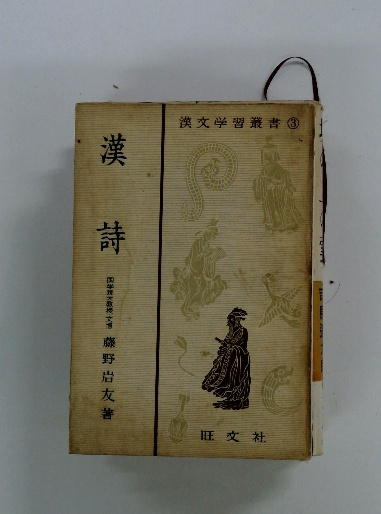 漢文学習叢書③
漢詩
国学院大教授・文博 藤野岩友著
旺文社